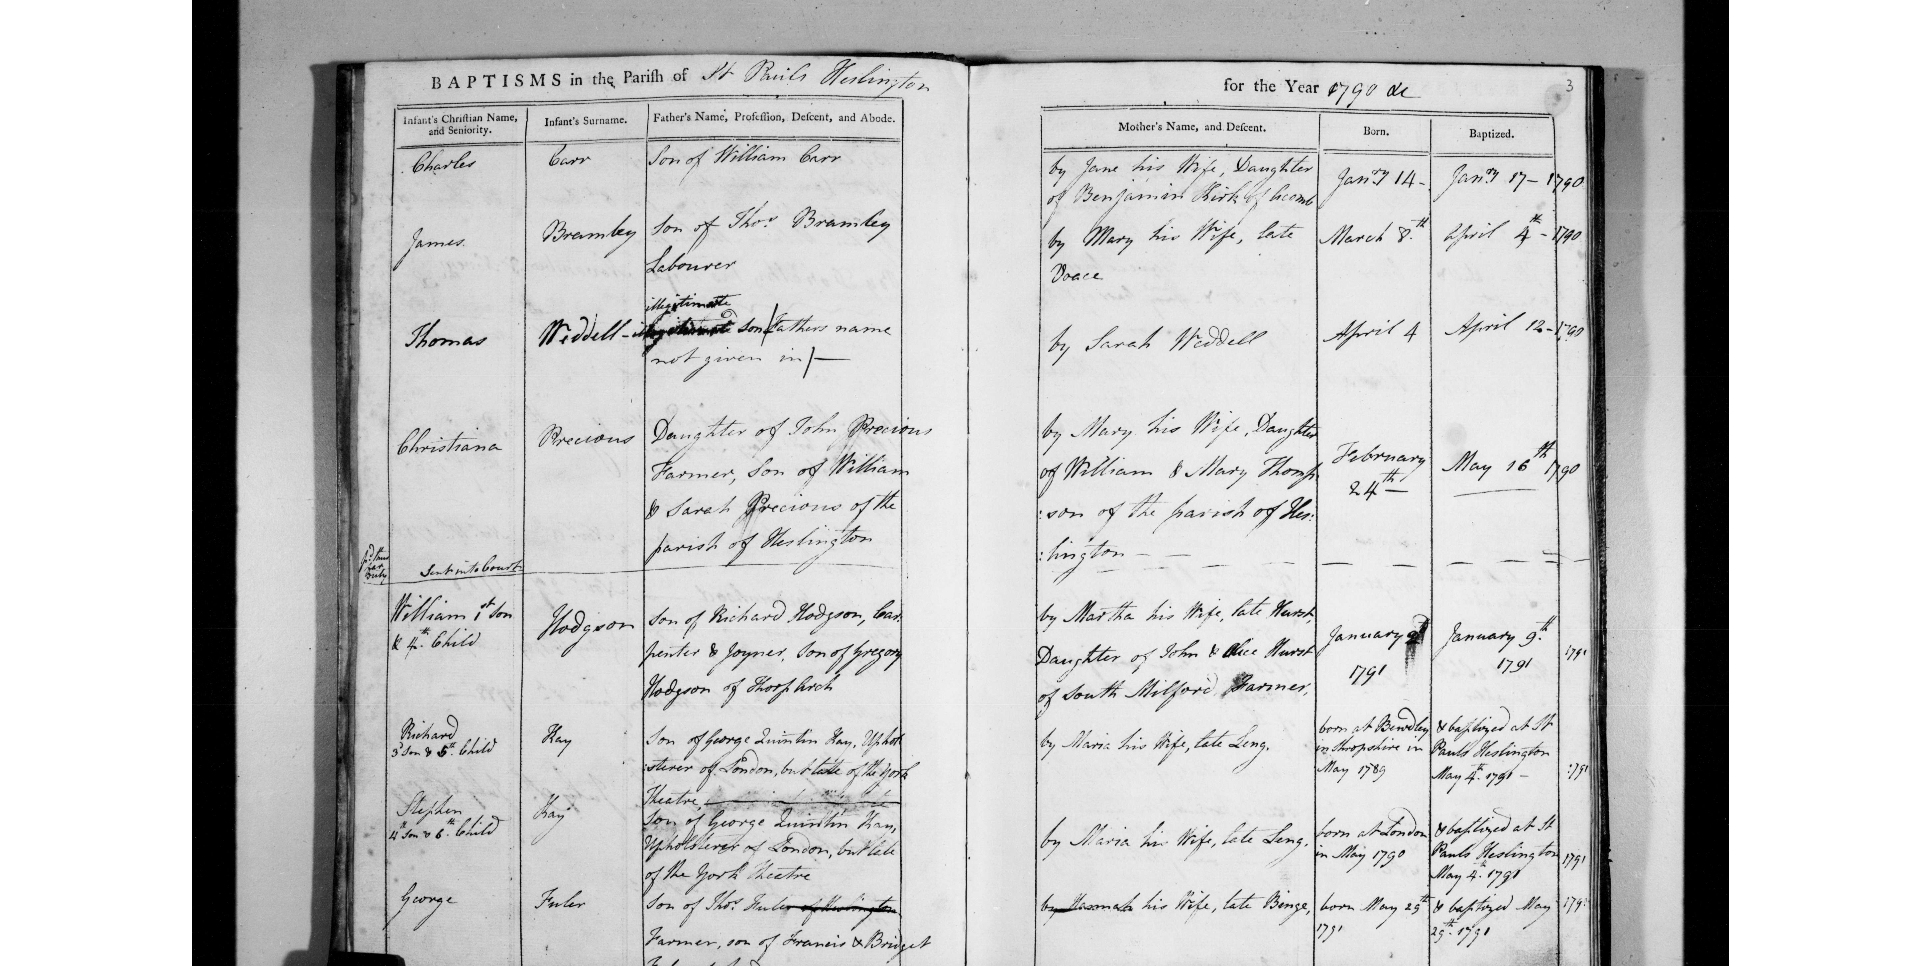 BAPTISMS in the Parish of St Pauls Heslington
for the Year 1790 &c
3
Infant's Christian Name, and Seniority.
Infant's Surname.
Father's Name, Profession, Descent, and Abode.
Mother's Name, and Descent.
Born.
Baptized.
Charles
Carr
Son of William Carr
by Jane his Wife, Daughter
of Benjamin Kirk of Acomb
Janry 14-
Janry 17- 1790
James
Bramley
Son of Thos. Bramley
Labourer
by Mary his Wife, late
March 8th
April 4th - 1790
Thomas
Weddell
illegitimate
son (Fathers name
not given in)-
by Sarah Weddell
April 4
April 12- 1790
Christiana
Precious
Daughter of John Precious
Farmer, Son of William
& Sarah Precious of the
parish of Heslington
by Mary his Wife, Daughter
of William & Mary Thomp
:son of the parish of Hes:
:lington - -
February
24th -
May 16th 1790
Sent into Court
William 1st Son
& 4th Child
Hodgson
Son of Richard Hodgson, Car
penter & Joyner, Son of Gregory
Hodgson of Thorp Arch
by Martha his Wife, late Hurst,
Daughter of John & Alice Hurst
of South Milford, Farmer,
January
1791
January 9th
1791
1791
Richard
3d Son & 5th Child
Kay
Son of George Quintin Kay, Uphol
:sterer of London, but late of the York
Theatre
by Maria his Wife, late Leng.
born at Bewdley
in Shropshire in
May 1789
& baptized at St
Pauls Heslington
May 4th 1791 -
1791
Stephen
4th Son & 6th Child
Kay
Son of George Quintin Kay,
Upholsterer of London, but late
of the York Theatre
by Maria his Wife, late Leng.
born at London
in May 1790
& baptized at St
Pauls Heslington
May 4th 1791
1791
George
Fuler
Son of Thos. Fuler of Heslington
Farmer, son of Francis & Bridget
by Hannah his Wife, late Binge,
born May 29th
1791
& baptized May
29th 1791
1791